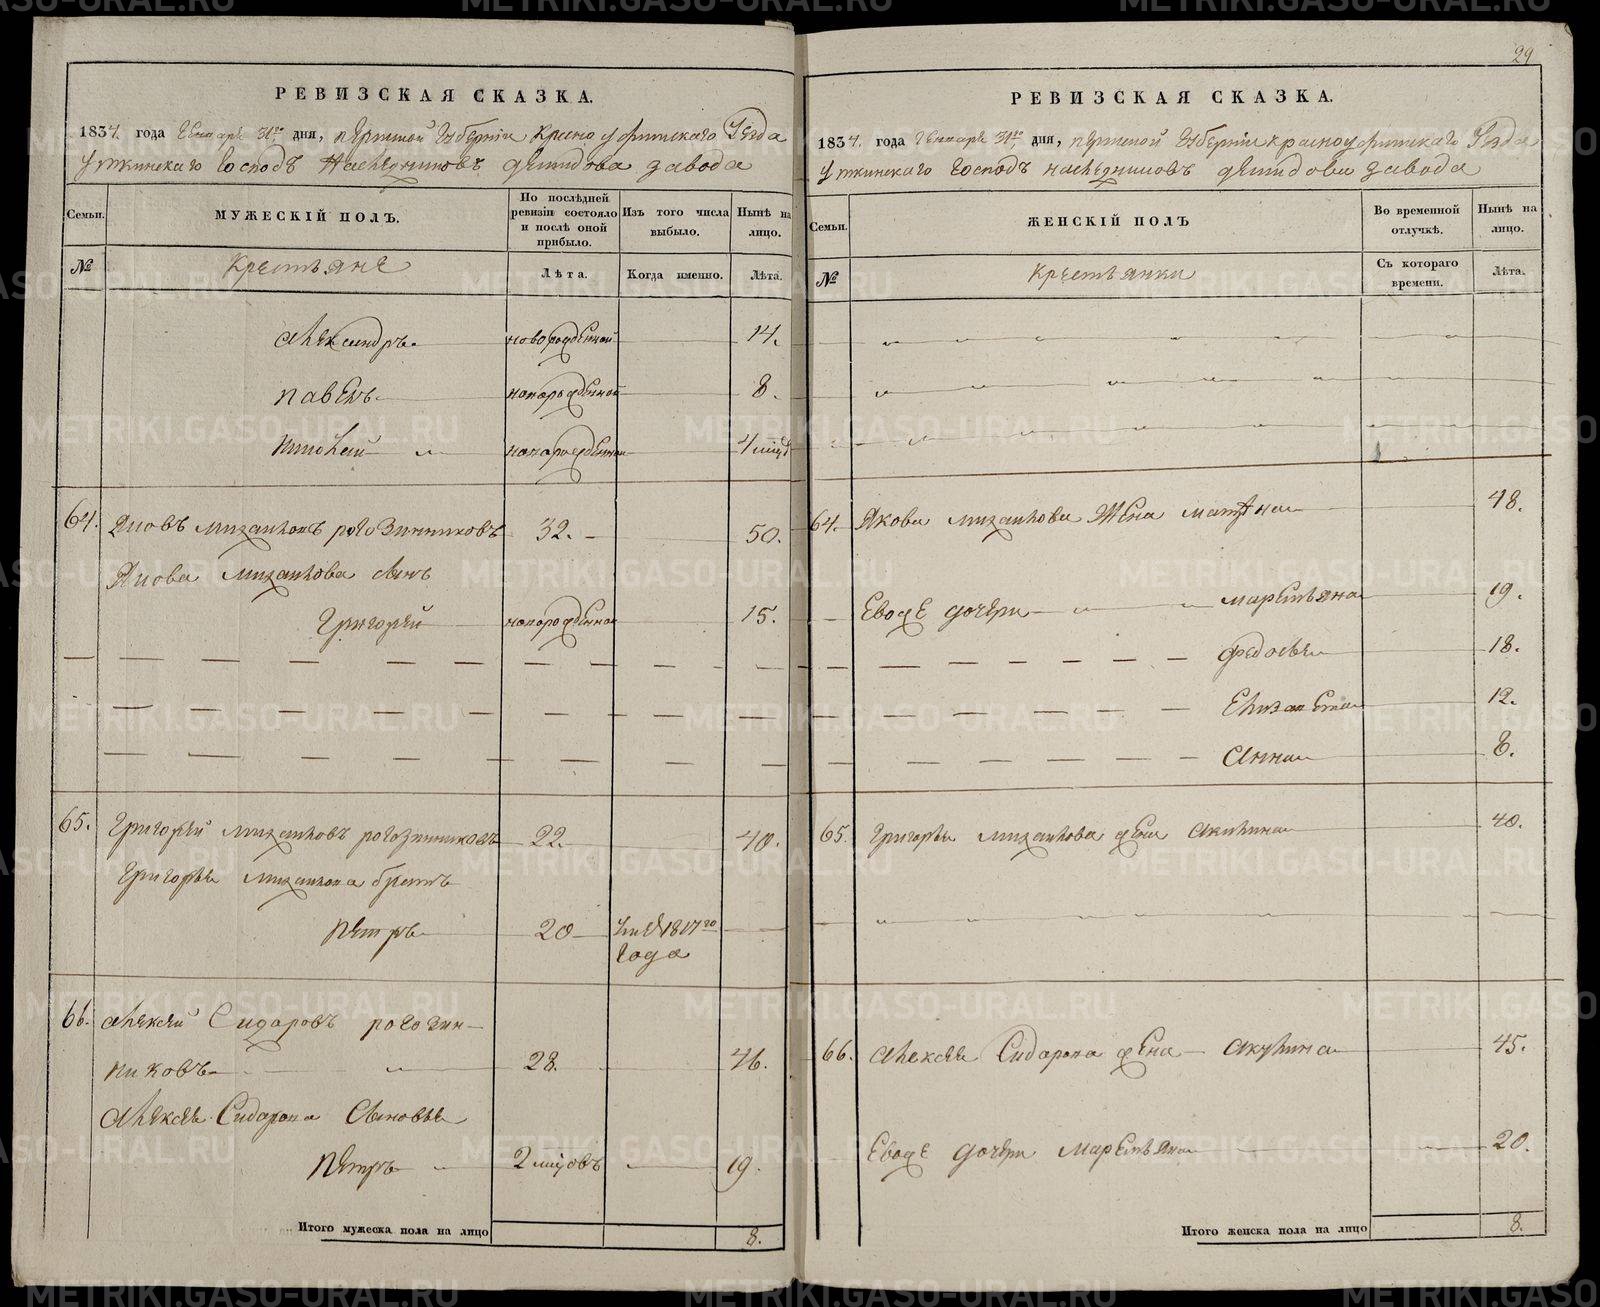 29
РЕВИЗСКАЯ СКАЗКА.
1834. года Генваря 31го дня, пермской губернiи Красноуфимскаго Уѣзда
Уткинскаго Господъ Наслѣдниковъ демидова завода
Семьи.
МУЖЕСКIЙ ПОЛЪ.
По послѣдней ревизiи состояло и послѣ оной прибыло.
Изъ того числа выбыло.
Нынѣ на лицо.
№
Крестьяне
Лѣта.
Когда именно.
Лѣта.
Александръ новорожденной 14.
Павелъ новорожденной 8.
новорожденной
64. Яковъ михаиловъ рогозинниковъ 32. 50.
Якова михаилова сынъ
Григорей новорожденной 15.
65. Григорей михаиловъ рогозинниковъ 22. 40.
Григорья михаилова братъ
Петръ 20 1817го
года
66. Алексей Сидаровъ рогозин-
никовъ 28. 46.
Алексея Сидарова Сыновье
Петръ 2 мцовъ 19.
Итого мужеска пола на лицо 8.
РЕВИЗСКАЯ СКАЗКА.
1834. года Генваря 31го дня, пермской губернiи красноуфимскаго Уѣзда
Уткинскаго Господъ наслѣдниковъ демидова завода
Семьи.
ЖЕНСКIЙ ПОЛЪ
Во временной отлучкѣ.
Нынѣ на лицо.
№
Крестьянки
Съ котораго времени.
Лѣта.
64. Якова михаилова жена матрна 48.
Евоже дочери маремьяна 19.
федосья 18.
Елизавета 12.
Анна 8.
65. Григорья михаилова жена Акилина 40.
66. Алексея Сидарова жена Акулина 45.
Евоже дочери маремьяна 20.
Итого женска пола на лицо 8.
METRIKI.GASO-URAL.RU